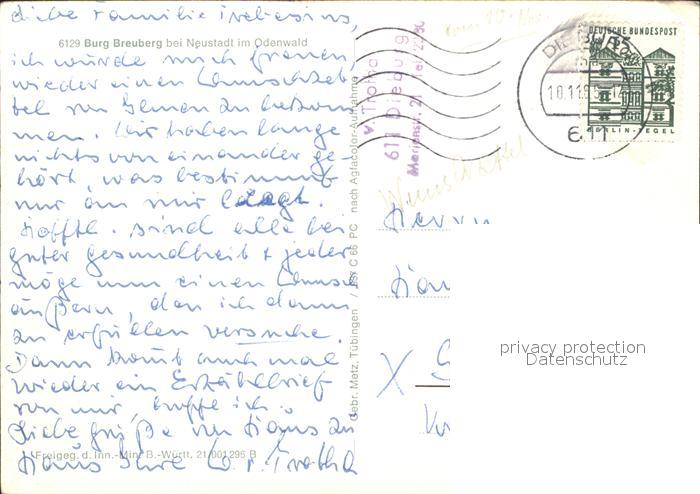 Liebe Familie
6129 Burg Breuberg bei Neustadt im Odenwald
ich würde mich freuen,
wieder einen Wunschzet-
tel von Ihnen zu bekom-
men. Wir haben lange
nichts voneinander ge-
hört, was bestimmt
nur an mir liegt.
Hofftl. sind alle bei
guter Gesundheit + jeder
möge nun einen Wunsch
äußern, den ich dann
zu erfüllen versuche.
Dann kommt auch mal
wieder ein Erzählbrief
von mir, hoffe ich.
Liebe Grüße von Haus zu
Haus Ihre v. Trotha
Freigeg. d. Inn.-Min. B.-Württ. 21/001 296 B
Gebr. Metz, Tübingen / 757 C 66 PC nach Agfacolor-Aufnahme
v. Trotha
611 Dieburg
Marienstr. 21
DEUTSCHE BUNDESPOST
BERLIN-TEGEL
DIEBURG
611
Wunschzettel
Herrn
privacy protection
Datenschutz